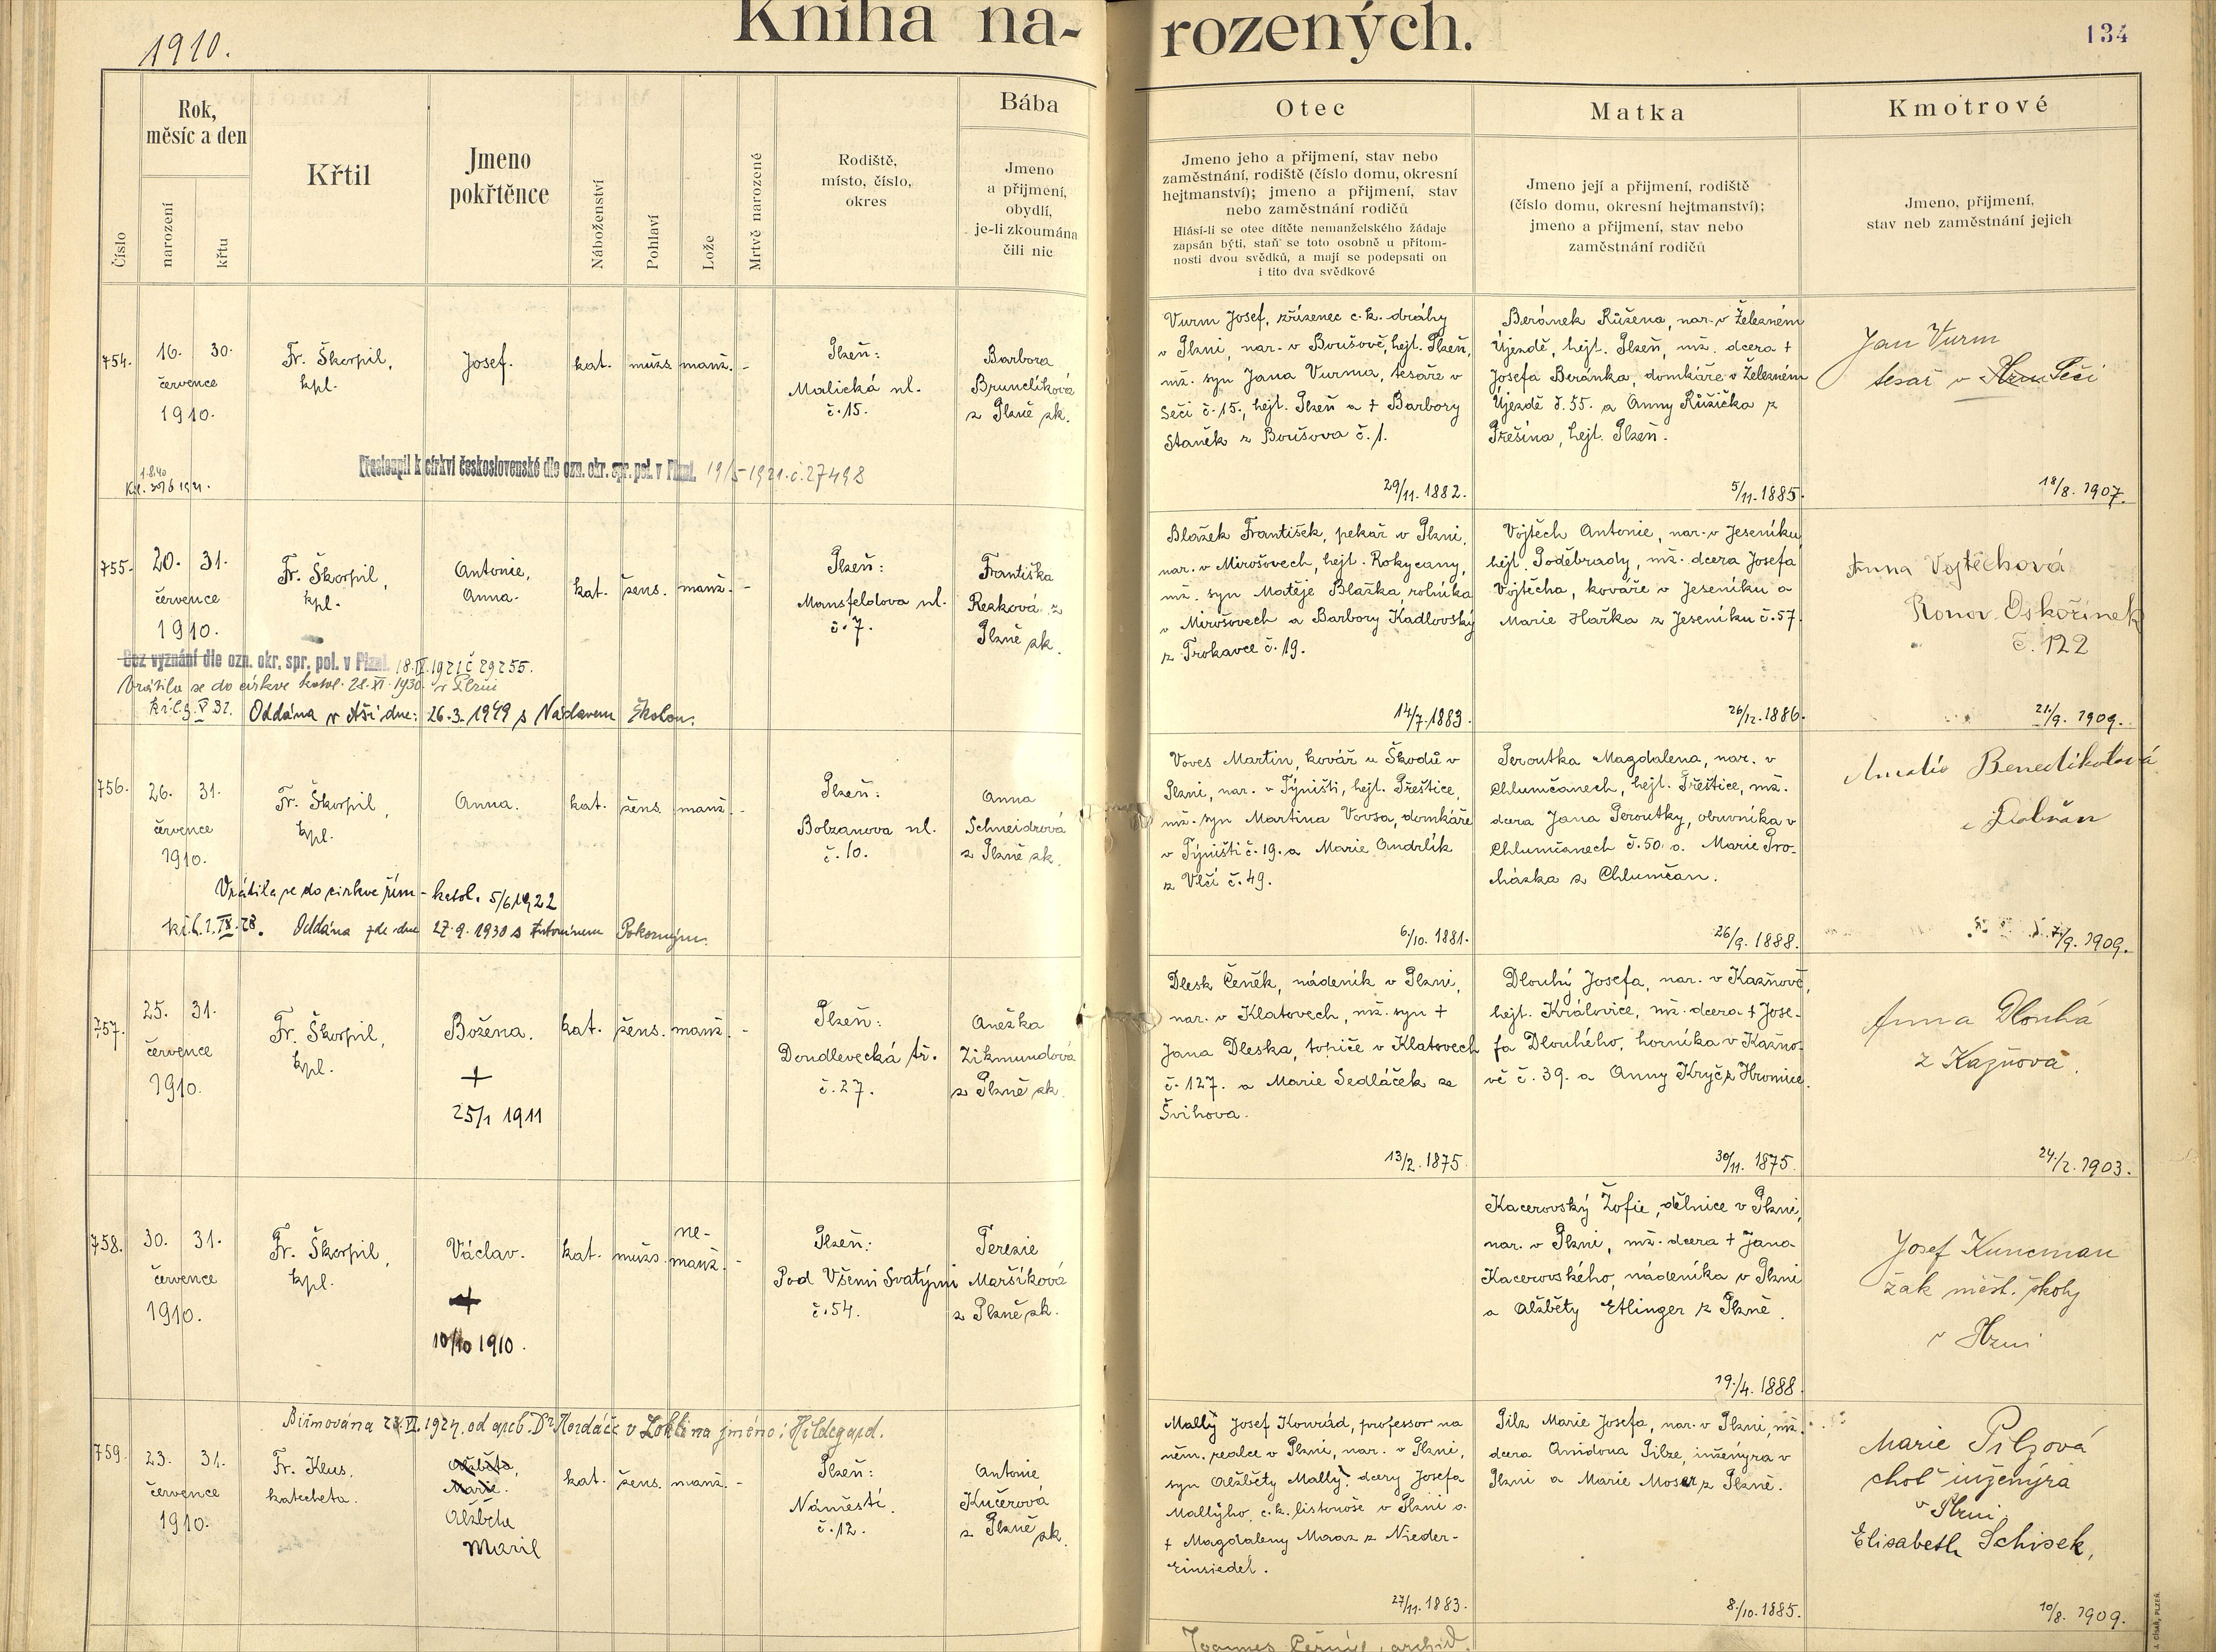 1910.
Kniha narozených.
134
Číslo
Rok,
měsíc a den
narození
křtu
Křtil
Jmeno
pokřtěnce
Náboženství
Pohlaví
Lože
Mrtvě narozené
Rodiště,
místo, číslo,
okres
Bába
Jmeno
a přijmení,
obydlí,
je-li zkoumána
čili nic
Otec
Jmeno jeho a přijmení, stav nebo
zaměstnání, rodiště (číslo domu, okresní
hejtmanství); jmeno a přijmení, stav
nebo zaměstnání rodičů
Hlásí-li se otec dítěte nemanželského žádaje
zapsán býti, staň se toto osobně u přítom-
nosti dvou svědků, a mají se podepsati on
i tito dva svědkové
Matka
Jmeno její a přijmení, rodiště
(číslo domu, okresní hejtmanství);
jmeno a přijmení, stav nebo
zaměstnání rodičů
Kmotrové
Jmeno, přijmení,
stav neb zaměstnání jejich
754.
16. 30.
července
1910.
Fr. Škorpil,
kpl.
Josef.
kat.
mužs.
manž.
-
Plzeň:
Malická ul.
č. 15.
Barbora
Brunclíková
z Plzně zk.
Přestoupil k církvi československé dle ozn. okr. spr. pol. v Plzni. 19/5 1921. č. 27498
Vurm Josef, zřízenec c. k. dráhy
v Plzni, nar. v Boušově, hejt. Plzeň,
mž. syn Jana Vurma, tesaře v
Seči č. 15., hejt. Plzeň a † Barbory
Staněk z Boušova č. 1.
29/11. 1882.
Beránek Růžena, nar. v Železném
Újezdě, hejt. Plzeň, mž. dcera †
Josefa Beránka, domkáře v Železném
Újezdě č. 55. a Anny Růžička z
Přešína, hejt. Plzeň.
5/11. 1885.
Jan Vurm
tesař v Seči
18/8. 1907.
755.
20. 31.
července
1910.
Fr. Škorpil,
kpl.
Antonie,
Anna.
kat.
žens.
manž.
-
Plzeň:
Mansfeldova ul.
č. 7.
Františka
Rezková z
Plzně zk.
Bez vyznání dle ozn. okr. spr. pol. v Plzni. 18. IV. 1921 č 29255.
Vrátila se do církve katol. 28. XI. 1930 v Plzni
Oddána v Aši dne: 26. 3. 1949 s Václavem Školou.
Blažek František, pekař v Plzni,
nar. v Mirošovech, hejt. Rokycany,
mž. syn Matěje Blažka, rolníka
v Mirošovech a Barbory Kadlovský
z Trokavce č. 19.
14/7. 1883.
Vojtěch Antonie, nar. v Jeseníku,
hejt. Poděbrady, mž. dcera Josefa
Vojtěcha, kováře v Jeseníku a
Marie Hařka z Jeseníku č. 57.
26/12. 1886.
Anna Vojtěchová
Oskořínek
č. 122
21/9. 1909.
756.
26. 31.
července
1910.
Fr. Škorpil,
kpl.
Anna.
kat.
žens.
manž.
-
Plzeň:
Bolzanova ul.
č. 10.
Anna
Schneidrová
z Plzně zk.
Vrátila se do církve řím-katol. 5/6 1922
Oddána zde dne 27. 9. 1930 s Antonínem Pokorným.
Voves Martin, kovář u Škodů v
Plzni, nar. v Týništi, hejt. Přeštice,
mž. syn Martina Vovsa, domkáře
v Týništi č. 19. a Marie Ondrlík
z Vlčí č. 49.
6./10. 1881.
Peroutka Magdalena, nar. v
Chlumčanech, hejt. Přeštice, mž.
dcera Jana Peroutky, obuvníka v
Chlumčanech č. 50. a Marie Pro-
cházka z Chlumčan.
26/9. 1888.
Amalie Benediktová
z Dobřan
7/9. 1909.
757.
25. 31.
července
1910.
Fr. Škorpil,
kpl.
Božena.
+
25/1 1911
kat.
žens.
manž.
-
Plzeň:
Doudlevecká tř.
č. 27.
Anežka
Zikmundová
z Plzně zk.
Dlesk Čeněk, nádeník v Plzni,
nar. v Klatovech, mž. syn †
Jana Dleska, topiče v Klatovech
č. 127. a Marie Sedláček ze
Švihova.
13/2. 1875.
Dlouhý Josefa, nar. v Kazňově,
hejt. Královice, mž. dcera † Jose-
fa Dlouhého, horníka v Kazňo-
vě č. 39. a Anny Kryč z Hromice.
30/11. 1875.
Anna Dlouhá
z Kazňova.
24/2. 1903.
758.
30. 31.
července
1910.
Fr. Škorpil,
kpl.
Václav.
+
10/10 1910.
kat.
mužs.
ne-
manž.
-
Plzeň:
Pod Všemi Svatými
č. 54.
Terezie
Maršíková
z Plzně zk.
Kacerovský Žofie, dělnice v Plzni,
nar. v Plzni, mž. dcera † Jana
Kacerovského, nádeníka v Plzni
a Alžběty Etlinger z Plzně.
19./4. 1888.
Josef Kuncman
žak měst. školy
v Plzni
Biřmována 1927. od arcib. Dr Kordáče v Lokti na jméno: Hildegard.
759.
23. 31.
července
1910.
Fr. Klus,
katecheta.
Alžběta,
Marie.
Alžběta
Marie
kat.
žens.
manž.
-
Plzeň:
Náměstí
č. 12.
Antonie
Kučerová
z Plzně zk.
Mallý Josef Konrád, professor na
něm. realce v Plzni, nar. v Plzni,
syn Alžběty Mallý, dcery Josefa
Mallýho, c. k. listonoše v Plzni a
† Magdaleny Maaz z Nieder-
Einsiedel.
27/11. 1883.
Pilz Marie Josefa, nar. v Plzni, mž.
dcera Anidona Pilze, inženýra v
Plzni a Marie Moser z Plzně.
8./10. 1885.
Marie Pilzová
choť inženýra
v Plzni
Elisabeth Schisek,
10/8. 1909.
Joannes Černý, archid.